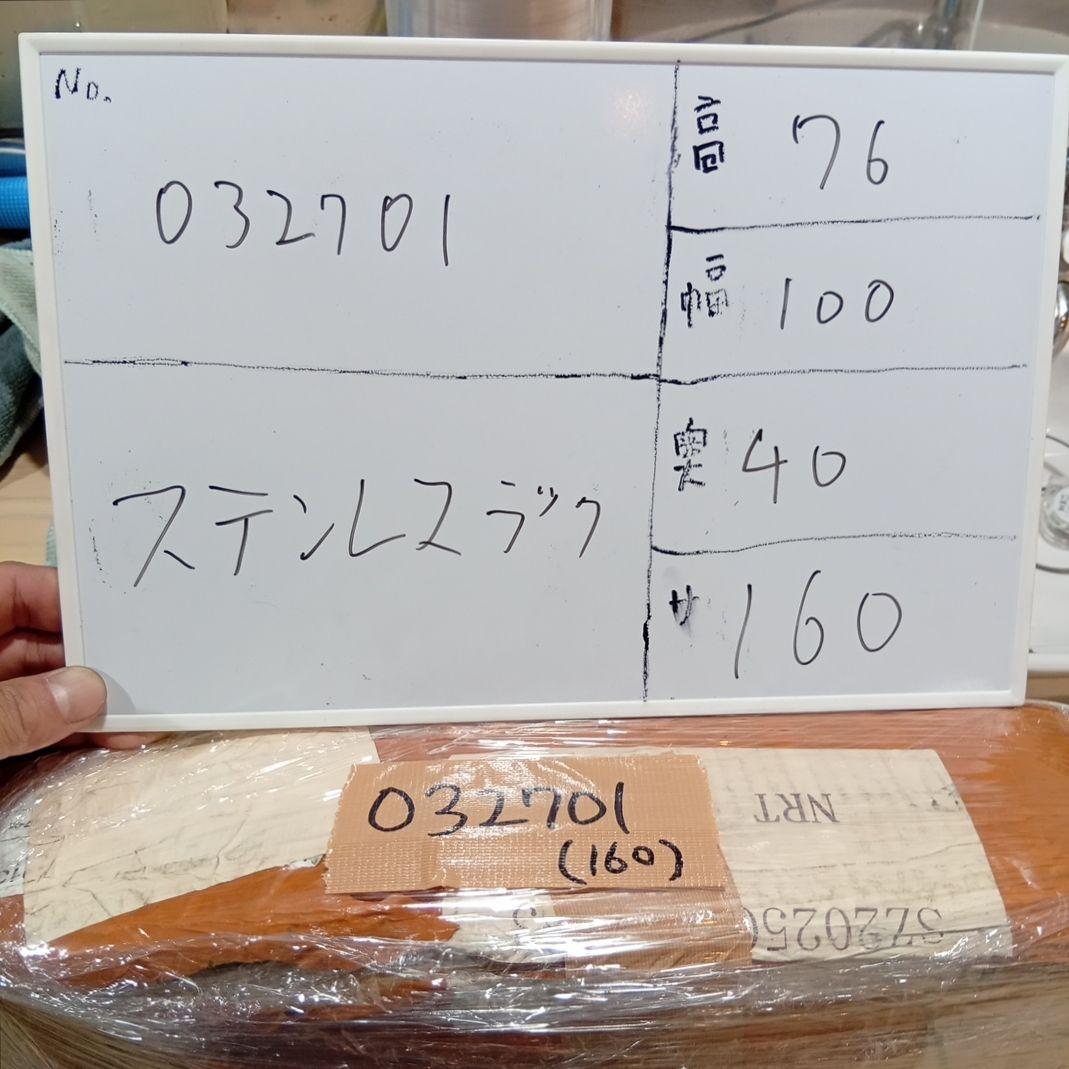 No.
032701
ステンレスラック
高さ 76
幅 100
奥 40
サ 160
032701
(160)
NRT